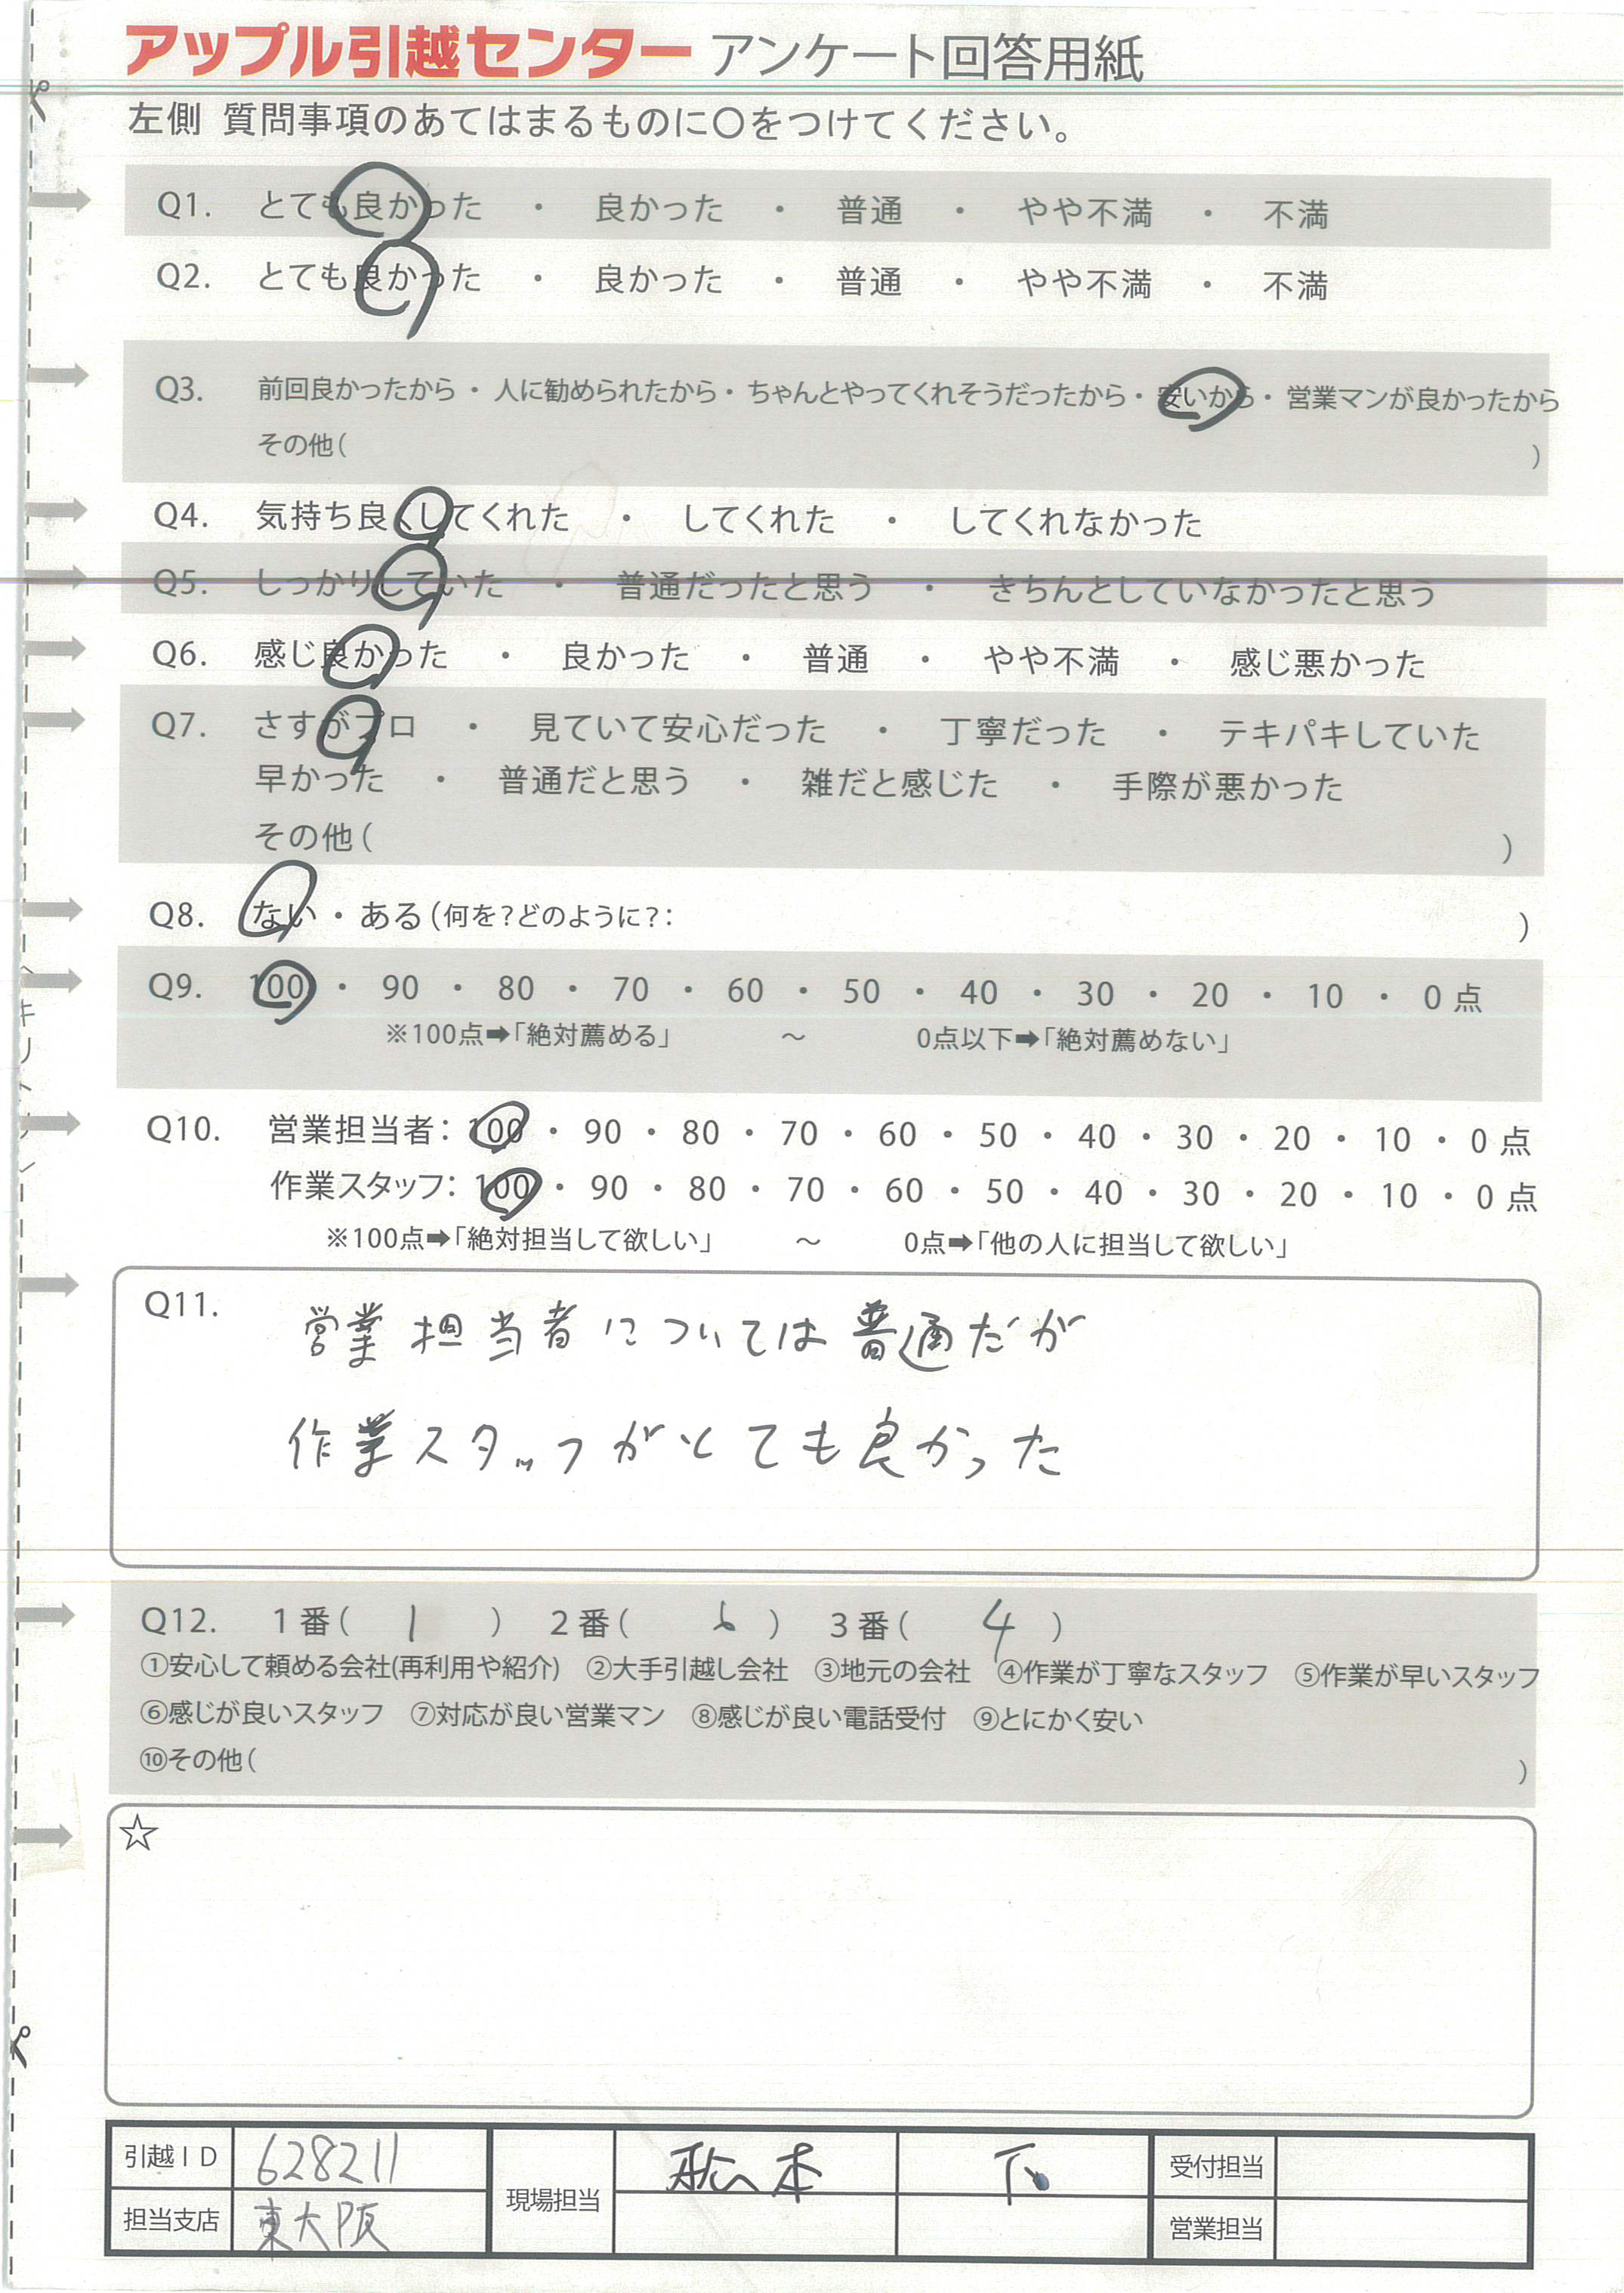 アップル引越センター アンケート回答用紙
左側 質問事項のあてはまるものに〇をつけてください。
Q1. とても良かった ・ 良かった ・ 普通 ・ やや不満 ・ 不満
Q2. とても良かった ・ 良かった ・ 普通 ・ やや不満 ・ 不満
Q3. 前回良かったから・人に勧められたから・ちゃんとやってくれそうだったから・安いから・営業マンが良かったから
その他( )
Q4. 気持ち良くしてくれた ・ してくれた ・ してくれなかった
Q5. しっかりしていた ・ 普通だったと思う ・ きちんとしていなかったと思う
Q6. 感じ良かった ・ 良かった ・ 普通 ・ やや不満 ・ 感じ悪かった
Q7. さすがプロ ・ 見ていて安心だった ・ 丁寧だった ・ テキパキしていた
早かった ・ 普通だと思う ・ 雑だと感じた ・ 手際が悪かった
その他( )
Q8. ない・ある(何を?どのように?: )
Q9. 100 ・ 90 ・ 80 ・ 70 ・ 60 ・ 50 ・ 40 ・ 30 ・ 20 ・ 10 ・ 0点
※100点➡「絶対薦める」 ～ 0点以下➡「絶対薦めない」
Q10. 営業担当者: 100 ・ 90 ・ 80 ・ 70 ・ 60 ・ 50 ・ 40 ・ 30 ・ 20 ・ 10 ・ 0点
作業スタッフ: 100 ・ 90 ・ 80 ・ 70 ・ 60 ・ 50 ・ 40 ・ 30 ・ 20 ・ 10 ・ 0点
※100点➡「絶対担当して欲しい」 ～ 0点➡「他の人に担当して欲しい」
Q11. 営業担当者については普通だが
作業スタッフがとても良かった
Q12. 1番( 1 ) 2番( 6 ) 3番( 4 )
①安心して頼める会社(再利用や紹介) ②大手引越し会社 ③地元の会社 ④作業が丁寧なスタッフ ⑤作業が早いスタッフ
⑥感じが良いスタッフ ⑦対応が良い営業マン ⑧感じが良い電話受付 ⑨とにかく安い
⑩その他( )
☆
引越ID 628211 現場担当 松本 下 受付担当
担当支店 東大阪 営業担当